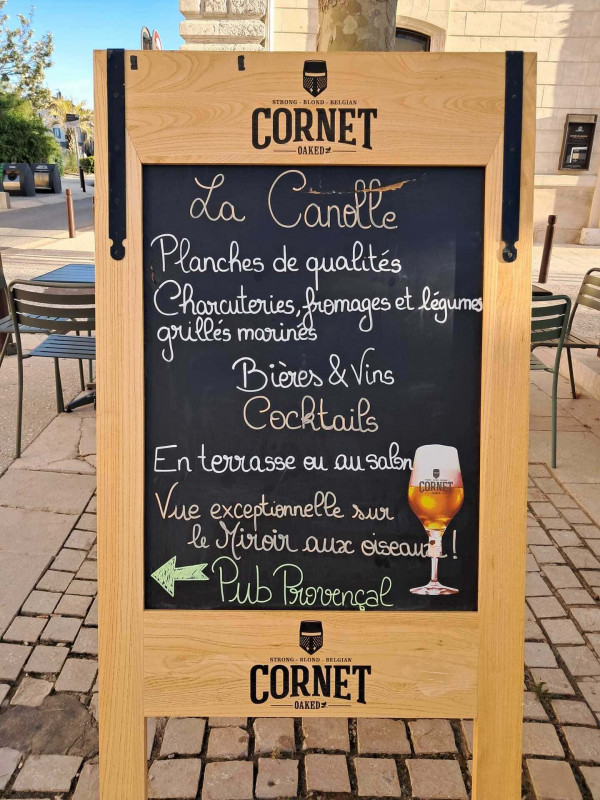 STRONG - BLOND - BELGIAN
CORNET
OAKED
La Canolle
Planches de qualités
Charcuteries, fromages et légumes
grillés marinés
Bières & Vins
Cocktails
En terrasse ou au salon
CORNET
Vue exceptionnelle sur
le Miroir aux oiseaux !
Pub Provençal
STRONG - BLOND - BELGIAN
CORNET
OAKED